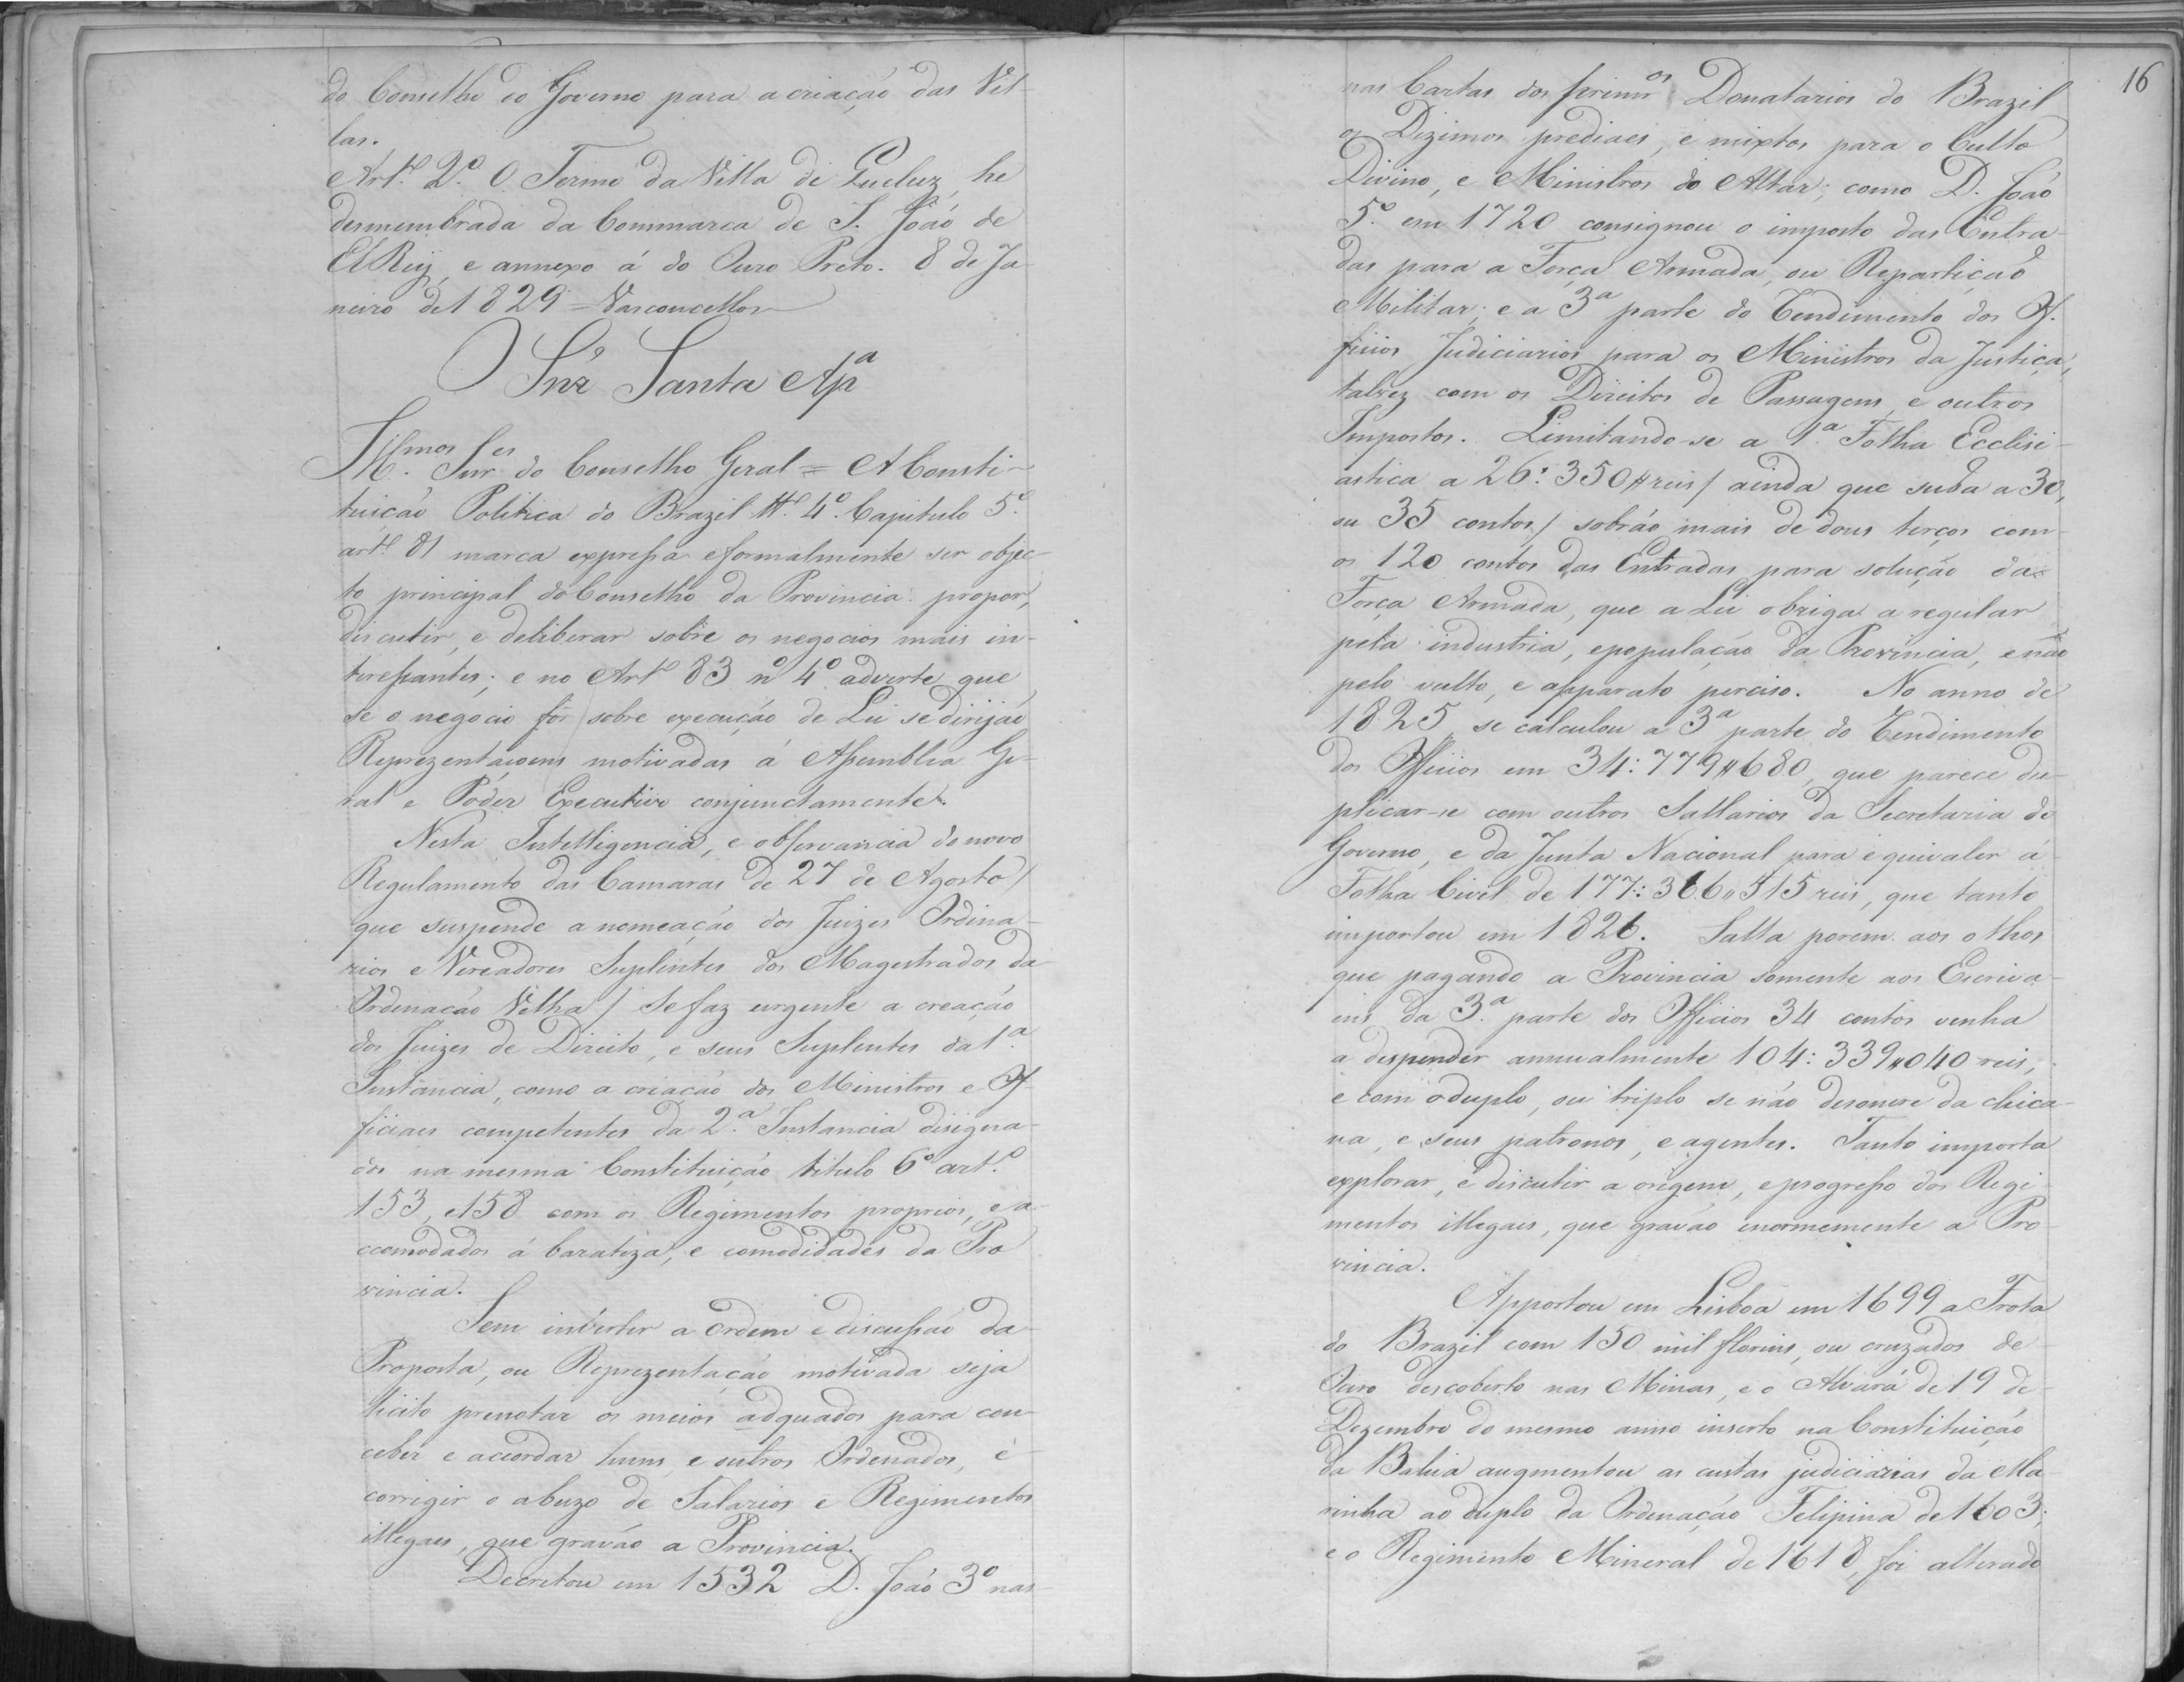 do Conselho do Governo para a criação das Vil-
las.
Art.º 2.º O Termo da Villa de Queluz, he
desmembrada da Commarca de S. João de
El Rey, e annexo á do Ouro Preto. 8 de Ja-
neiro de 1829 = Vasconcellos
Snr Santa Ap.ª
Ill.mos Snr.es do Conselho Geral = A Consti-
tuição Politica do Brazil tt.º 4.º Capitulo 5.º
art.º 81 marca expressa e formalmente ser objec-
to principal do Conselho da Provincia propor,
discutir, e deliberar sobre os negocios mais in-
teressantes; e no Art.º 83 nº 4º adverte que
se o negocio fôr sobre execução de Lei se dirijão
Reprezentaçoens motivadas á Assemblea Ge-
ral e Poder Executivo conjunctamente.
Nesta Intelligencia, e observancia do novo
Regulamento das Camaras de 27 de Agosto /
que suspende a nomeação dos Juizes Ordina-
rios e Vereadores Suplentes dos Magestrados da
Ordenação Velha / Se faz urgente a creação
dos Juizes de Direito, e seus Suplentes da 1.ª
Instancia, como a criação dos Ministros e Of-
ficiaes competentes da 2.ª Instancia disigna-
dos na mesma Constituição titulo 6º art.º
153, e 158 com os Regimentos proprios, e a-
ccomodados á barateza, e comodidades da Pro
vincia.
Sem inverter a ordem e discussão da
Proposta, ou Reprezentação motivada seja
licito prenotar os meios adquados para con-
ceber e acordar huns, e outros Ordenados, e
corrigir o abuzo de Salarios e Regimentos
illegaes, que gravão a Provincia.
Decretou em 1532 D. João 3º nas
16
nas Cartas dos primr.os Donatarios do Brazil
os Dizimos prediaes, e mixtos para o Culto
Divino, e Ministros do Altar; como D. João
5.º em 1720 consignou o imposto das Entra-
das para a Força Armada, ou Repartição
Militar; e a 3ª parte do Rendimento dos Of-
ficios Judiciarios para os Ministros da Justiça,
talvez com os Direitos de Passagem, e outros
Impostos. Limitando-se a 1.ª Folha Ecclesi-
astica a 26:350# reis / ainda que suba a 30,
ou 35 contos / sobrão mais de dous terços com
os 120 contos das Entradas para solução da
Força Armada, que a Lei obriga a regular
pela industria, e população da Provincia, e não
pelo vulto, e apparato perciso. No anno de
1825 se calculou a 3ª parte do Rendimento
dos Officios em 34:779#680, que parece du-
plicar-se com outros Sallarios da Secretaria do
Governo, e da Junta Nacional para equivaler á
Folha Civil de 177:366#515 reis, que tanto
importou em 1826. Salta porem aos olhos
que pagando a Provincia somente aos Escriva-
ens da 3.ª parte dos Officios 34 contos venha
a despender annualmente 104:339#040 reis,
e com o duplo, ou triplo se não desonere da chica-
na, e seus patronos, e agentes. Tanto importa
explorar, e discutir a origem, e progresso dos Regi-
mentos illegaes, que gravão enormemente a Pro-
vincia.
Apportou em Lisboa em 1699 a Frota
do Brazil com 150 mil florins, ou cruzados de
Ouro descoberto nas Minas, e o Alvará de 19 de
Dezembro do mesmo anno inserto na Constituição
da Bahia augmentou as custas judiciarias da Ma-
rinha ao duplo da Ordenação Felipina de 1603;
e o Regimento Mineral de 1618, foi alterado